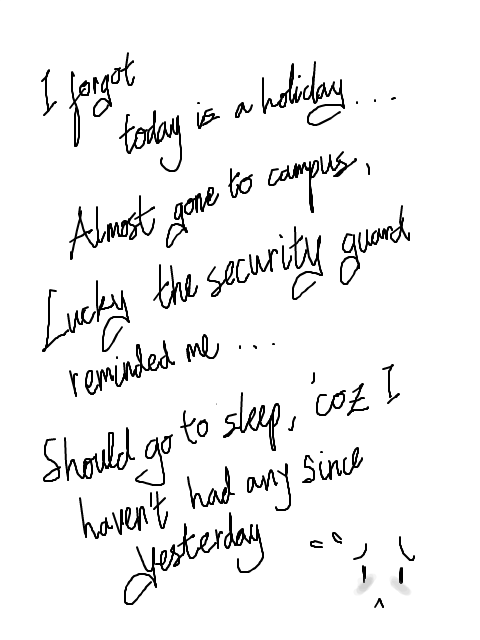 I forgot
today is a holiday...
Almost gone to campus,
Lucky the security guard
reminded me ...
Should go to sleep, 'coz I
haven't had any since
yesterday